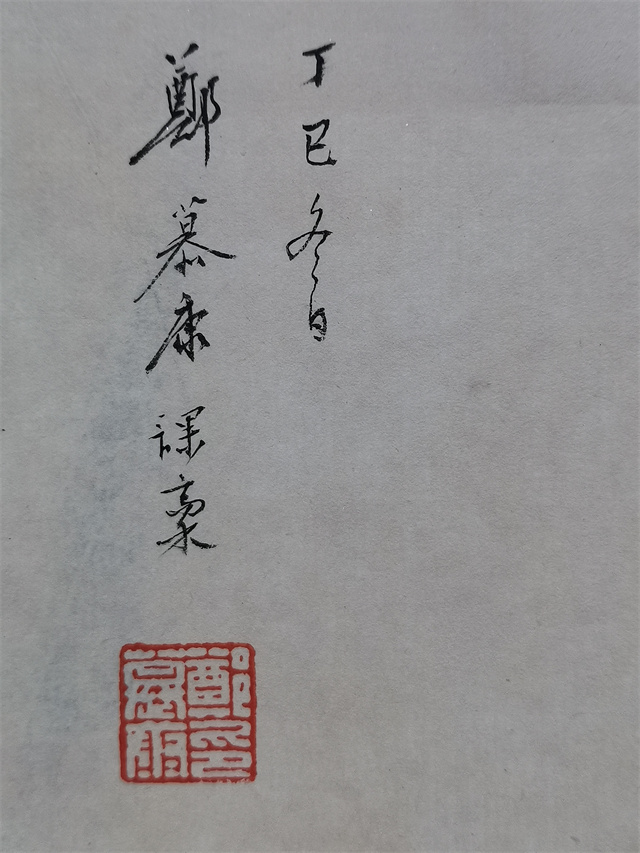 丁巳冬日
鄭慕康課稾
鄭印慕康